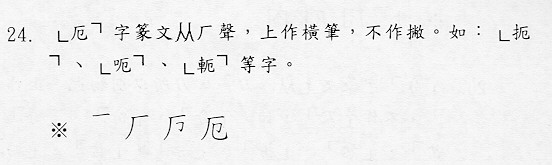 24. 「厄」字篆文从厂聲，上作橫筆，不作撇。如：「扼
」、「呃」、「軛」等字。
※ 一 厂 厄